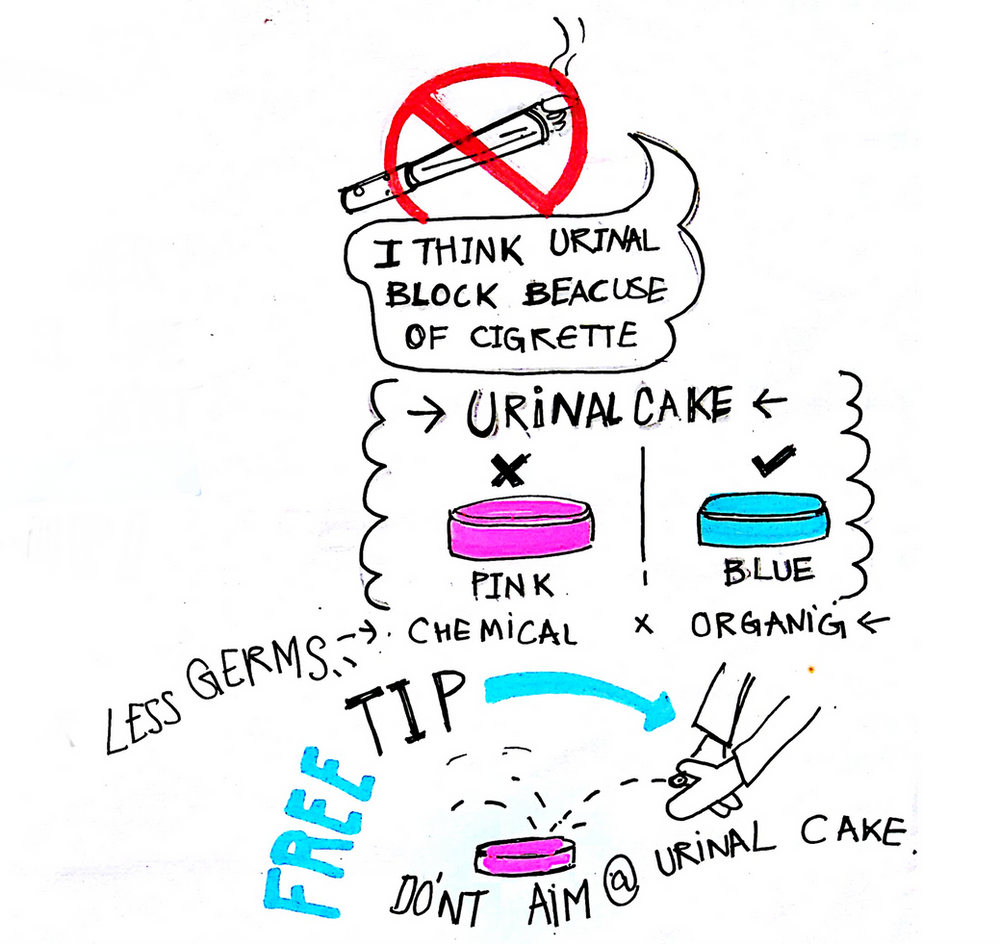 I THINK URINAL
BLOCK BEACUSE
OF CIGRETTE
→ URiNAL CAKE ←
PINK
BLUE
CHEMiCAL x ORGANiG ←
LESS GERMS
FREE TIP
DO'NT AiM @ URiNAL CAKE.